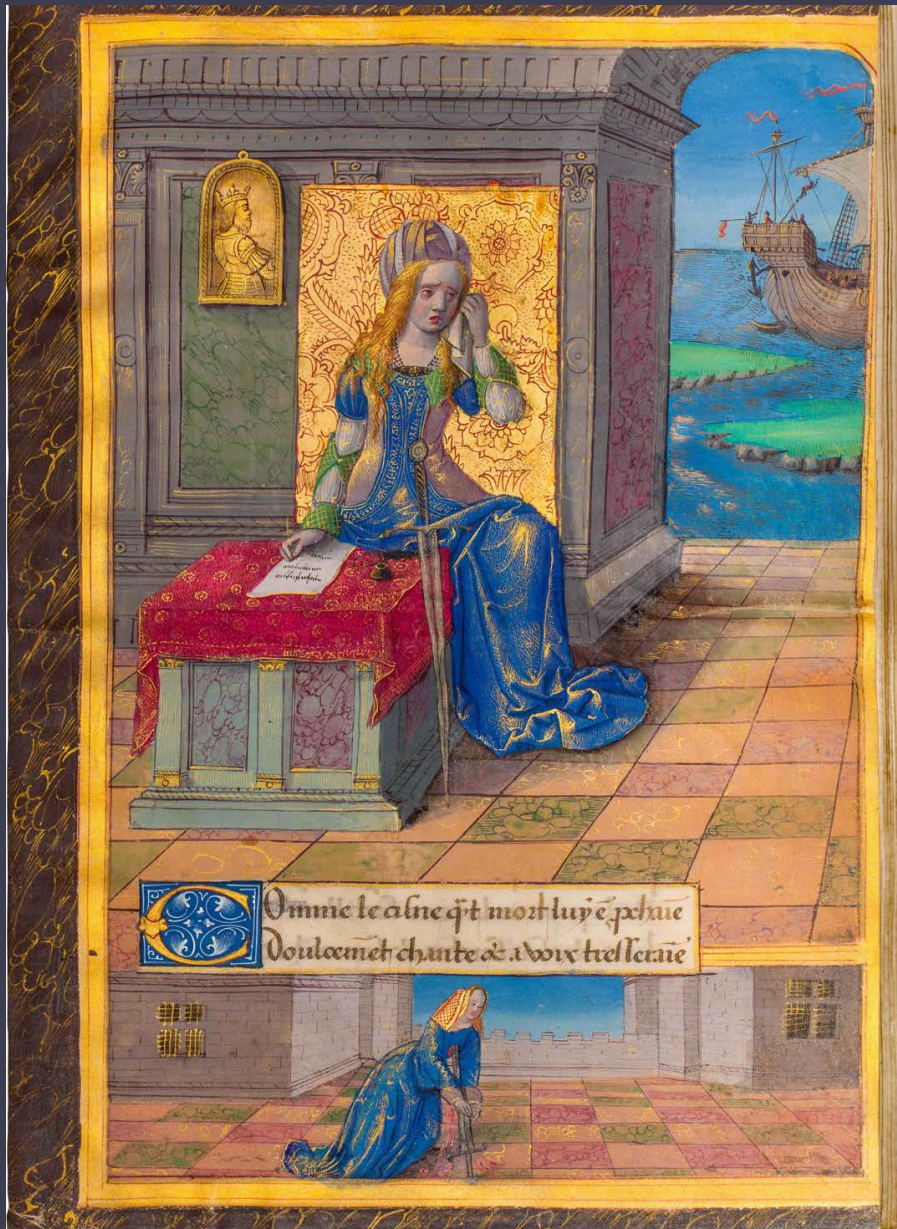 Comme le cisne q̃t mort luy ẽ ꝓchaīe
Doulcemẽt chante & a voix tresseraīe